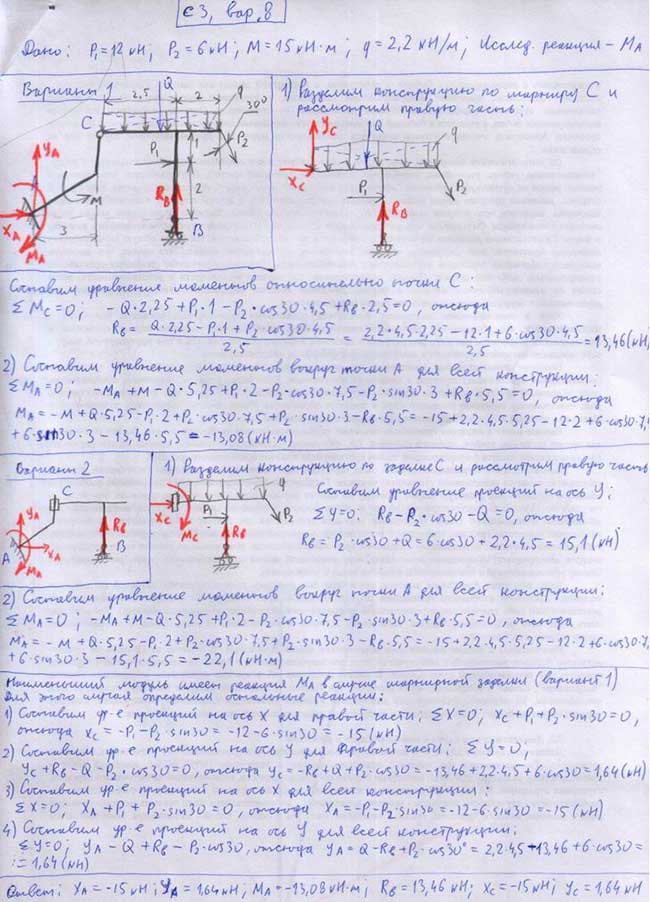 С3, вар. 8
Дано: P₁=12 кН, P₂=6 кН; M=15 кН·м; q=2,2 кН/м; Исслед. реакция – MA
Вариант 1
Q
q
2,5
2
30°
C
P₂
YA
1
P₁
2
M
RB
B
XA
3
MA
1) Разделим конструкцию по шарниру C и
рассмотрим правую часть:
YC
Q
q
XC
P₁
P₂
RB
Составим уравнение моментов относительно точки C:
ΣMC=0; -Q·2,25+P₁·1-P₂·cos30·4,5+RB·2,5=0, откуда
RB= (Q·2,25-P₁·1+P₂·cos30·4,5)/2,5 = (2,2·4,5·2,25-12·1+6·cos30·4,5)/2,5 =13,46(кН)
2) Составим уравнение моментов вокруг точки A для всей конструкции:
ΣMA=0; -MA+M-Q·5,25+P₁·2-P₂·cos30·7,5-P₂·sin30·3+RB·5,5=0, откуда
MA=-M+Q·5,25-P₁·2+P₂·cos30·7,5+P₂·sin30·3-RB·5,5=-15+2,2·4,5·5,25-12·2+6·cos30·7,
+6·sin30·3-13,46·5,5=-13,08(кН·м)
Вариант 2
C
YA
A
XA
MA
RB
B
1) Разделим конструкцию по заделке C и рассмотрим правую часть
XC
q
P₁
MC
RB
P₂
Составим уравнение проекций на ось Y:
ΣY=0: RB-P₂·cos30-Q=0, откуда
RB=P₂·cos30+Q=6·cos30+2,2·4,5=15,1(кН)
2) Составим уравнение моментов вокруг точки A для всей конструкции:
ΣMA=0; -MA+M-Q·5,25+P₁·2-P₂·cos30·7,5-P₂·sin30·3+RB·5,5=0, откуда
MA=-M+Q·5,25-P₁·2+P₂·cos30·7,5+P₂·sin30·3-RB·5,5=-15+2,2·4,5·5,25-12·2+6·cos30·7,
+6·sin30·3-15,1·5,5=-22,1(кН·м)
Наименьший модуль имеет реакция MA в случае шарнирной заделки (вариант 1)
Для этого случая определим остальные реакции:
1) Составим ур-е проекций на ось X для правой части; ΣX=0; XC+P₁+P₂·sin30=0,
откуда XC=-P₁-P₂·sin30=-12-6·sin30=-15(кН)
2) Составим ур-е проекций на ось Y для правой части: ΣY=0;
YC+RB-Q-P₂·cos30=0, откуда YC=-RB+Q+P₂·cos30=-13,46+2,2·4,5+6·cos30=1,64(кН)
3) Составим ур-е проекций на ось X для всей конструкции:
ΣX=0; XA+P₁+P₂·sin30=0, откуда XA=-P₁-P₂·sin30=-12-6·sin30=-15(кН)
4) Составим ур-е проекций на ось Y для всей конструкции;
ΣY=0; YA-Q+RB-P₂·cos30, откуда YA=Q-RB+P₂·cos30°=2,2·4,5-13,46+6·cos30=
=1,64(кН)
Ответ: XA=-15кН; YA=1,64кН; MA=-13,08кН·м; RB=13,46кН; XC=-15кН; YC=1,64кН